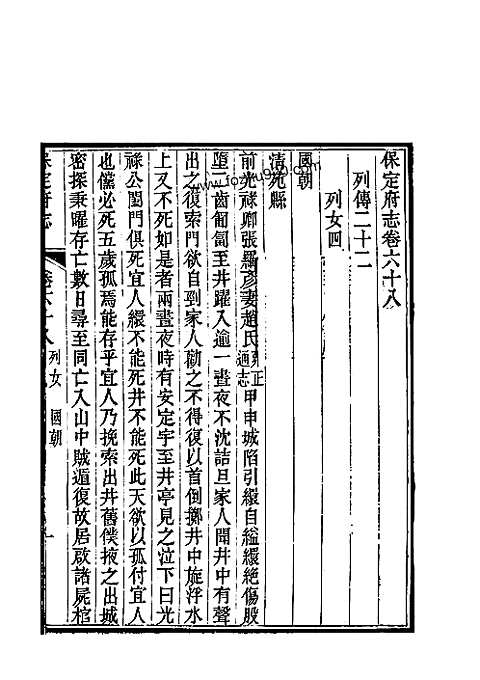 保定府志卷六十八
列傳二十二
列女四
國朝
清苑縣
前光祿卿張羅彥妻趙氏雍正通志甲申城陷引繯自縊繯絶傷股
墮二齒匍匐至井躍入逾一晝夜不沈詰旦家人聞井中有聲
出之復索門欲自剄家人勸之不得復以首倒擲井中旋浮水
上又不死如是者兩晝夜時有安定宇至井亭見之泣下曰光
祿公闔門俱死宜人繯不能死井不能死此天欲以孤付宜人
也儻必死五歲孤焉能存乎宜人乃挽索出井舊僕掖之出城
密探秉曜存亡數日尋至同亡入山中賊遁復故居啟諸屍棺
保定府志 卷六十八 列女 國朝 一